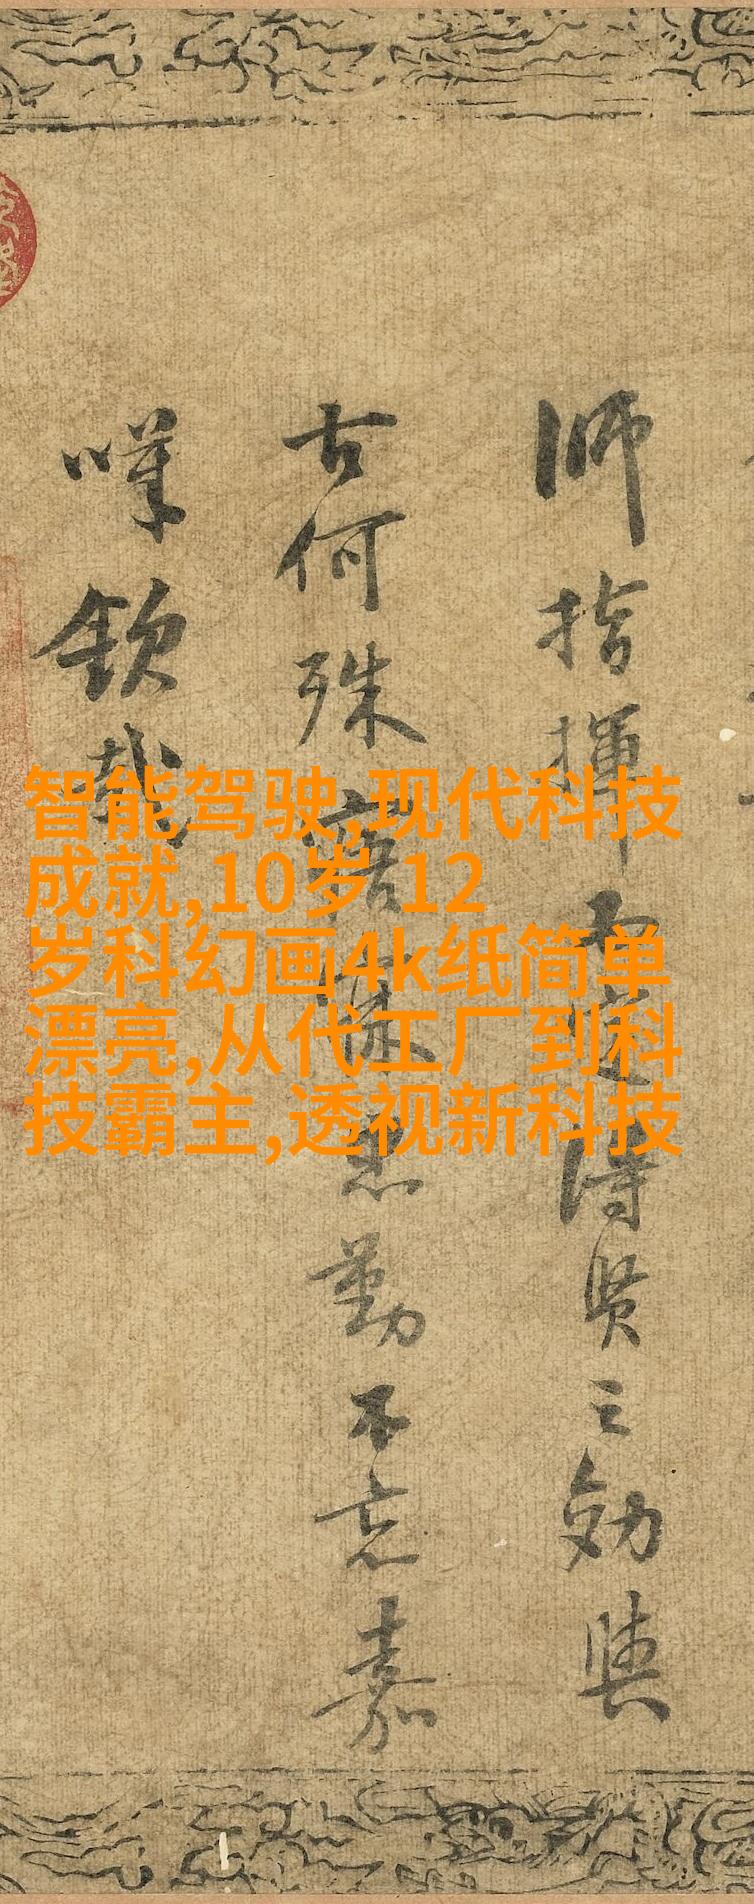 師指揮而定得賢之効與
古何殊寤寐忠勤不忘嘉
嘆欽哉
智能驾驶,现代科技
成就,10岁-12
岁科幻画4k纸简单
漂亮,从代工厂到科
技霸主,透视新科技